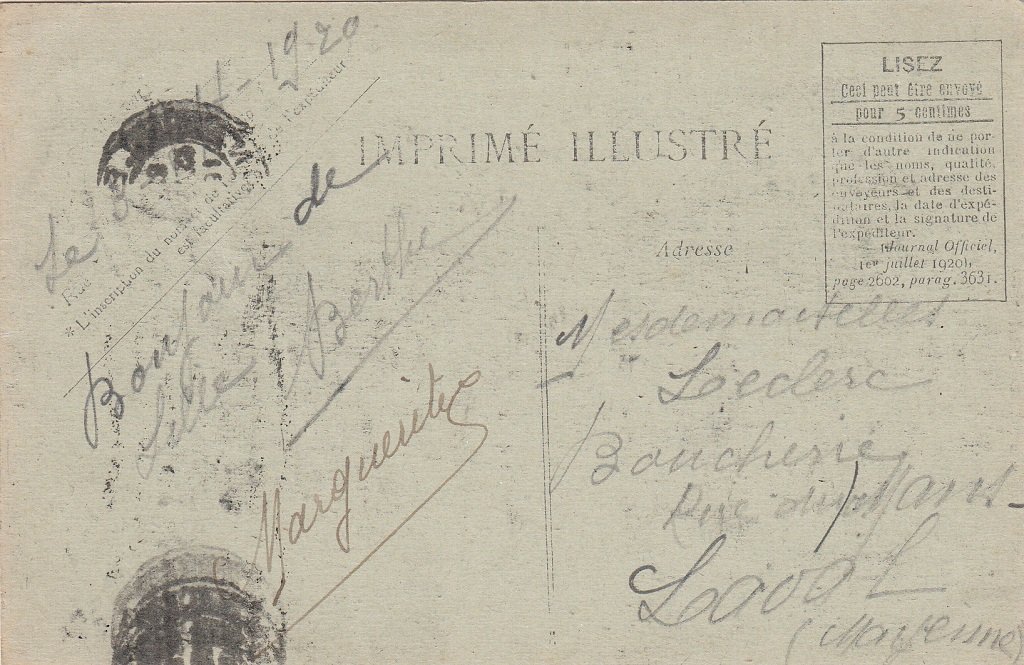 Le 13-11-1920
IMPRIMÉ ILLUSTRÉ
Rue
* L'inscription du nom de l'expéditeur
est facultative.
Bonjour de
Berthe
Marguerite
LISEZ
Ceci peut être envoyé
pour 5 centimes
à la condition de ne por-
ter d'autre indication
que les noms, qualité,
profession et adresse des
envoyeurs et des desti-
nataires, la date d'expé-
dition et la signature de
l'expéditeur.
(Journal Officiel,
1er juillet 1920),
page 2602, parag. 3631.
Adresse
Mesdemoiselles
Leclerc
Boucherie
Rue du Mans-
Laval
(Mayenne)